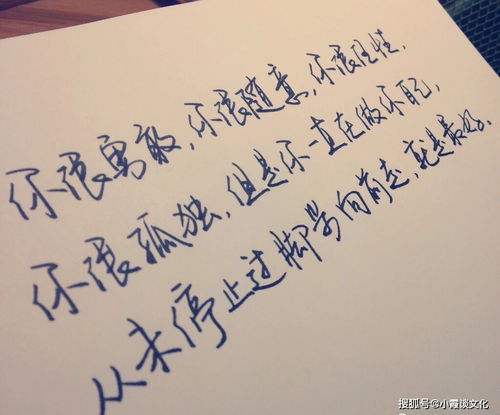 你很勇敢,你很随意,你很任性,
你很孤独,但是你一直在做你自己,
从未停止过脚步向前走,就是最好。
搜狐号@小霞谈文化